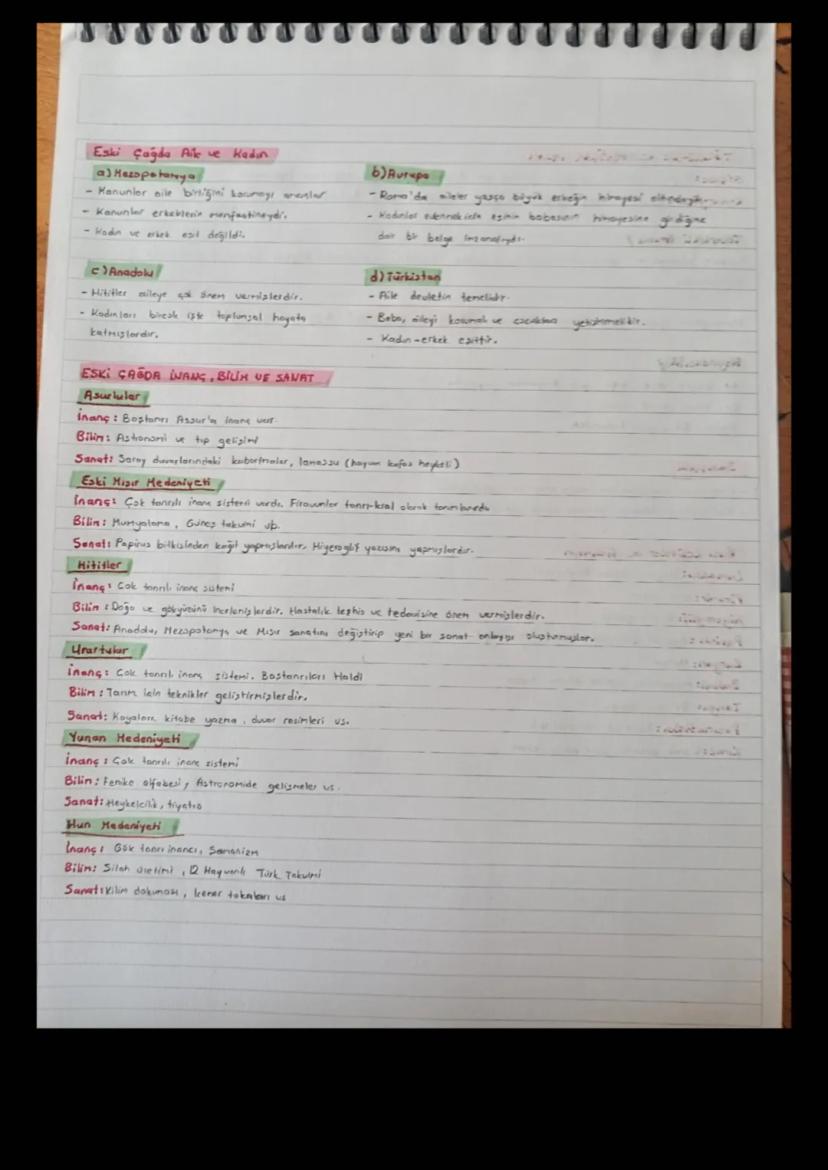 Eski Çağda Aile ve Kadın
a) Mezopotamya
- Kanunlar aile birliğini korumayı amaçlar
- Kanunlar erkeklerin menfaatineydi.
- Kadın ve erkek eşit değildi.
b) Avrupa
- Roma'da aileler yaşça büyük erkeğin himayesi altındaydı.
- Kadınlar esinin babasının himayesine girdiğine
dair bir belge imzalıydı.
c) Anadolu
- Hititler aileye çok önem vermişlerdir.
- Kadınları birçok işte toplumsal hayata
katmışlardır.
d) Türkistan
- Aile devletin temelidir.
- Baba, aileyi korumalı ve çocukları yetiştirmelidir.
- Kadın-erkek eşittir.
ESKİ ÇAĞDA İNANÇ, BİLİM VE SANAT
Asurlular
İnanç: Baştanrı Assur'a inanç var.
Bilim: Astronomi ve tıp gelişimi
Sanat: Saray duvarlarındaki kabartmalar, lamassu (hayvan kafası heykeli)
Eski Mısır Medeniyeti
İnanç: Çok tanrılı inanç sistemi vardı. Firavunler tanrı-kral olarak tanımlanırdı
Bilim: Mumyalama, Güneş takvimi vb.
Sanat: Papirus bitkisinden kağıt yapmışlardır. Hiyeroglif yazısını yapmışlardır.
Hititler
İnanç: Çok tanrılı inanç sistemi
Bilim: Doğa ve gökyüzünü incelemişlerdir. Hastalık teşhis ve tedavisine önem vermişlerdir.
Sanat: Anadolu, Mezopotamya ve Mısır sanatını değiştirip yeni bir sanat anlayışı oluşturmuşlar.
Urartular
İnanç: Çok tanrılı inanç sistemi. Baştanrıları Haldi
Bilim: Tarım için teknikler geliştirmişlerdir.
Sanat: Kayalara kitabe yazma, duvar resimleri vs.
Yunan Medeniyeti
İnanç: Çok tanrılı inanç sistemi
Bilim: Fenike alfabesi, Astronomide gelişmeler vs.
Sanat: Heykelcilik, tiyatro
Hun Medeniyeti
İnanç: Gök tanrı inancı, Şamanizm
Bilim: Silah üretimi, 12 Hayvanlı Türk Takvimi
Sanat: Kilim dokuması, kemer tokaları vs